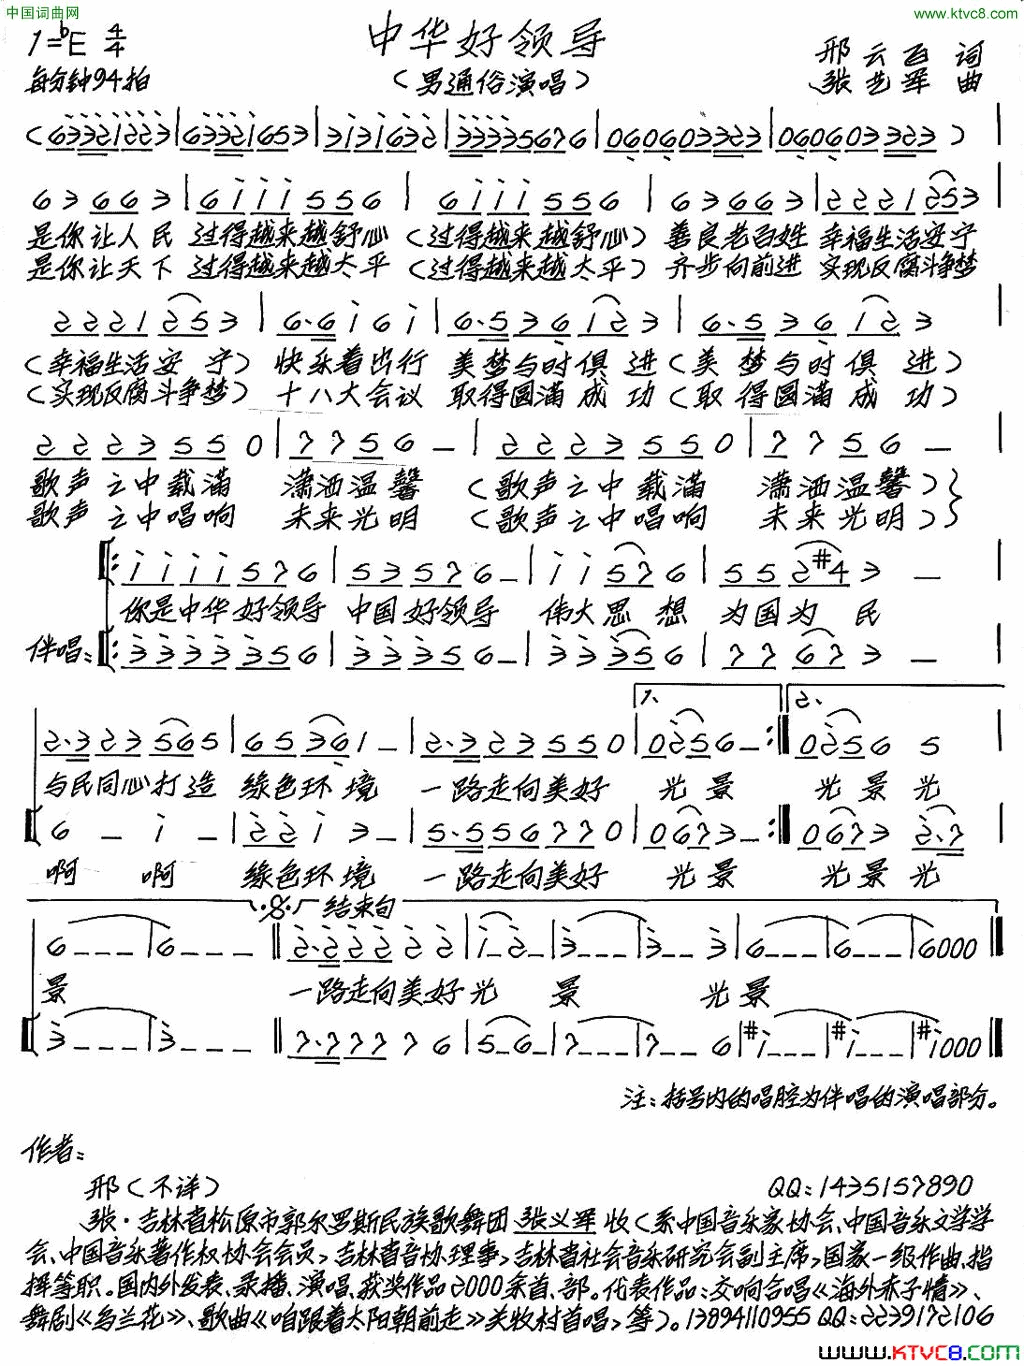 中国词曲网 www.ktvc8.com
1=bE 4/4 中华好领导
邢云百 词
每分钟94拍 (男通俗演唱) 张艺军 曲
(63321223|63321653|3131632|33335676|0606033323|0606033323)|
63663|6111556|6111556|63663|2221253|
是你让人民 过得越来越舒心 (过得越来越舒心) 善良老百姓 幸福生活安宁
是你让天下 过得越来越太平 (过得越来越太平) 齐步向前进 实现反腐斗争梦
2221253|6·6161|6·536123|6·536 123|
(幸福生活安 宁) 快乐着出行 美梦与时俱 进 (美 梦与时 俱 进)
(实现反腐斗争梦) 十八大会议 取得圆满成 功 (取 得圆满 成 功)
2223550|7756–|2223550|7756–|
歌声之中载满 潇洒温馨 (歌声之中载满 潇洒温馨)}
歌声之中唱响 未来光明 (歌声之中唱响 未来光明)}
‖:1111576|53576–|11576|552#43–|
你是中华好领导 中国好领导 伟大思想 为国为 民
伴唱:‖:3333356|33356–|33356|77673–|
1. 2.
2·323565|65361–|2·323550|0256–:‖0256 5|
与民同心打造 绿色环境 一路走向美好 光景 光景光
6–1–|2213–|5·556770|0673–:‖0673 2·7|
啊 啊 绿色环境 一路走向美好 光景 光景光
结束句
6–––|6–––‖2·222222|12–|3–––|3––3|6–––|6–––|6000‖
景 一路走向美好光 景 光景
3–––|3–––‖7·777776|5–6–|7–––|7––6|#1–––|#1–––|#1000‖
注:括号内的唱腔为伴唱的演唱部分。
作者:
邢(不详) QQ:1435157890
张·吉林省松原市郭尔罗斯民族歌舞团 张义军 收(系中国音乐家协会、中国音乐文学学
会、中国音乐著作权协会会员,吉林省音协理事,吉林省社会音乐研究会副主席,国家一级作曲、指
挥等职。国内外发表、录播、演唱、获奖作品2000余首、部。代表作品:交响合唱《海外赤子情》、
舞剧《乌兰花》、歌曲《咱跟着太阳朝前走》关牧村首唱,等)。13894110955 QQ:2239172106
www.KTVC8.com